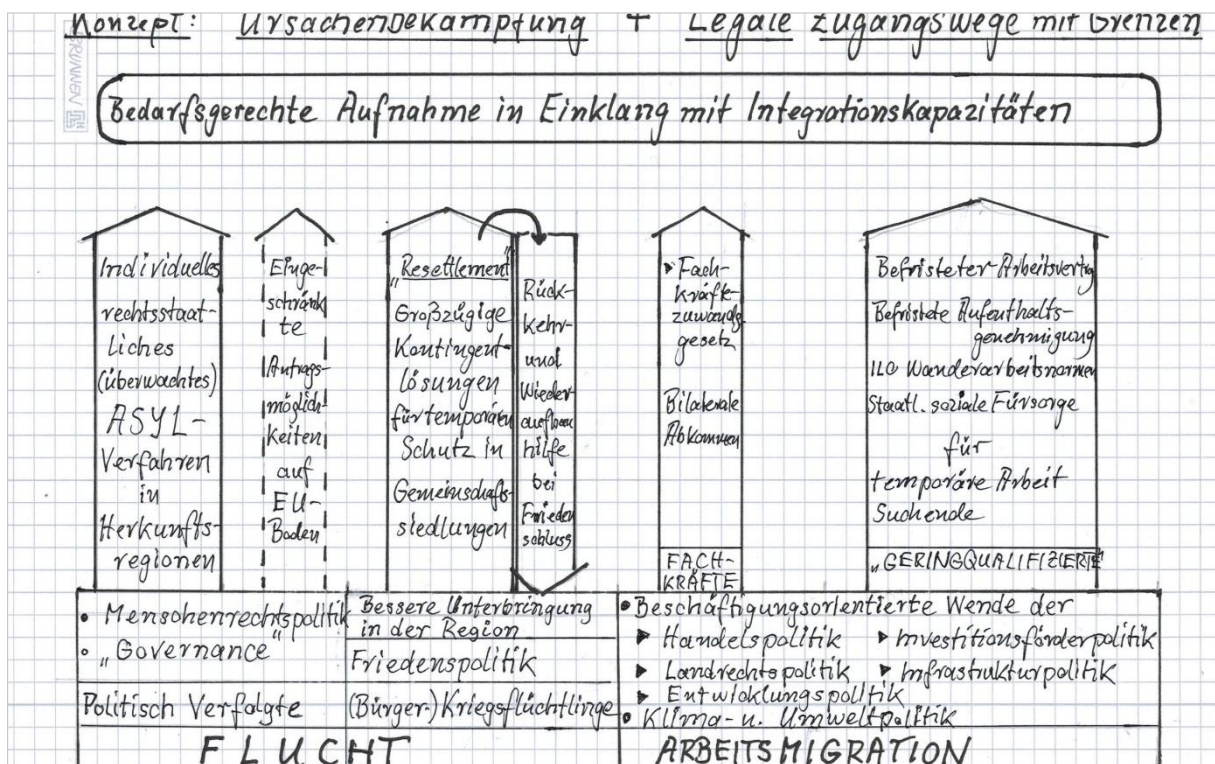 Konzept: Ursachenbekämpfung + Legale Zugangswege mit Grenzen
BRUNNEN
Bedarfsgerechte Aufnahme in Einklang mit Integrationskapazitäten
Individuelles
rechtsstaat-
liches
(überwachtes)
ASYL-
Verfahren
in
Herkunfts-
regionen
Einge-
schränk
te
Antrags-
möglich-
keiten
auf
EU-
Boden
"Resettlement"
Großzügige
Kontingent-
lösungen
für temporären
Schutz in
Gemeinschafts-
siedlungen
Rück-
kehr-
und
Wieder-
aufbau
hilfe
bei
Frieden
schluss
▸ Fach-
kräfte-
zuwandgs
gesetz
Bilaterale
Abkommen
FACH-
KRÄFTE
Befristeter Arbeitsvertrg
Befristete Aufenthalts-
genehmigung
ILO Wanderarbeitsnormen
Staatl. soziale Fürsorge
für
temporäre Arbeit
Suchende
"GERINGQUALIFIZIERTE"
• Menschenrechtspolitik
• "Governance"
Politisch Verfolgte
Bessere Unterbringung
in der Region
Friedenspolitik
(Bürger-) Kriegsflüchtlinge
FLUCHT
• Beschäftigungsorientierte Wende der
▸ Handelspolitik ▸ Investitionsförderpolitik
▸ Landrechtspolitik ▸ Infrastrukturpolitik
▸ Entwicklungspolitik
• Klima- u. Umweltpolitik
ARBEITSMIGRATION